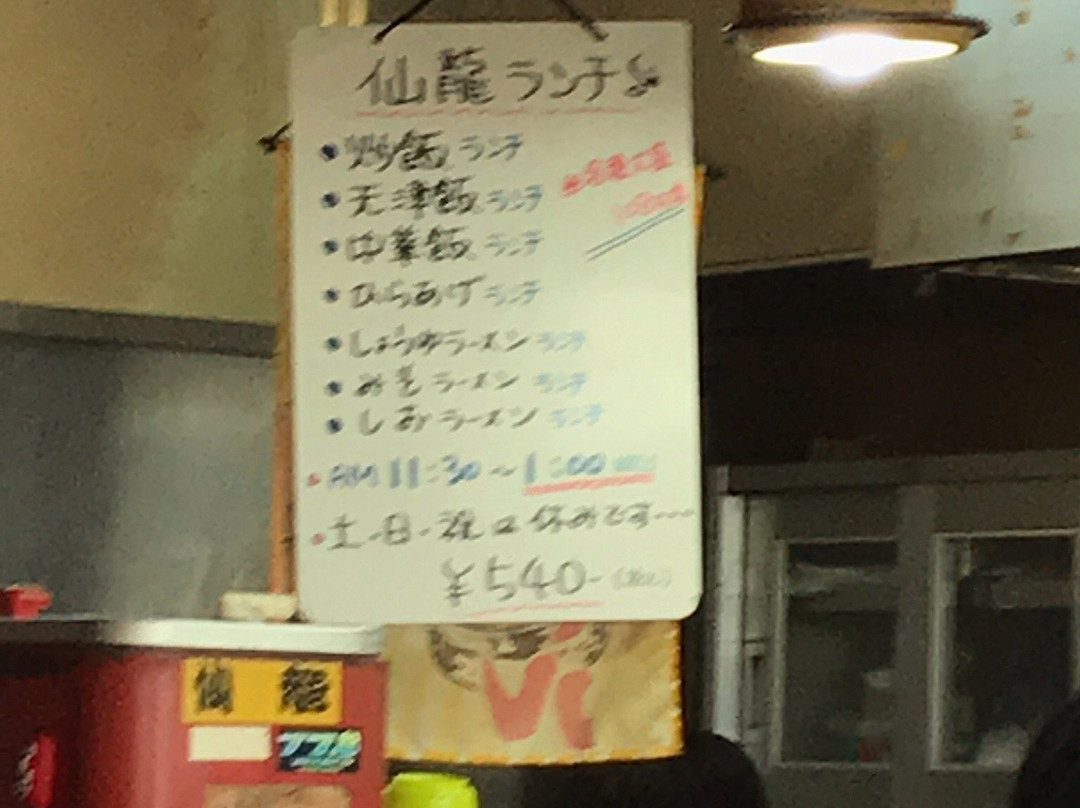 仙龍ランチ
・炒飯ランチ
・天津飯ランチ
・中華飯ランチ
・からあげランチ
・しょうゆラーメンランチ
・みそラーメンランチ
・しおラーメンランチ
・AM 11:30~1:00
・土・日・祝は休みです…
¥540-
仙龍